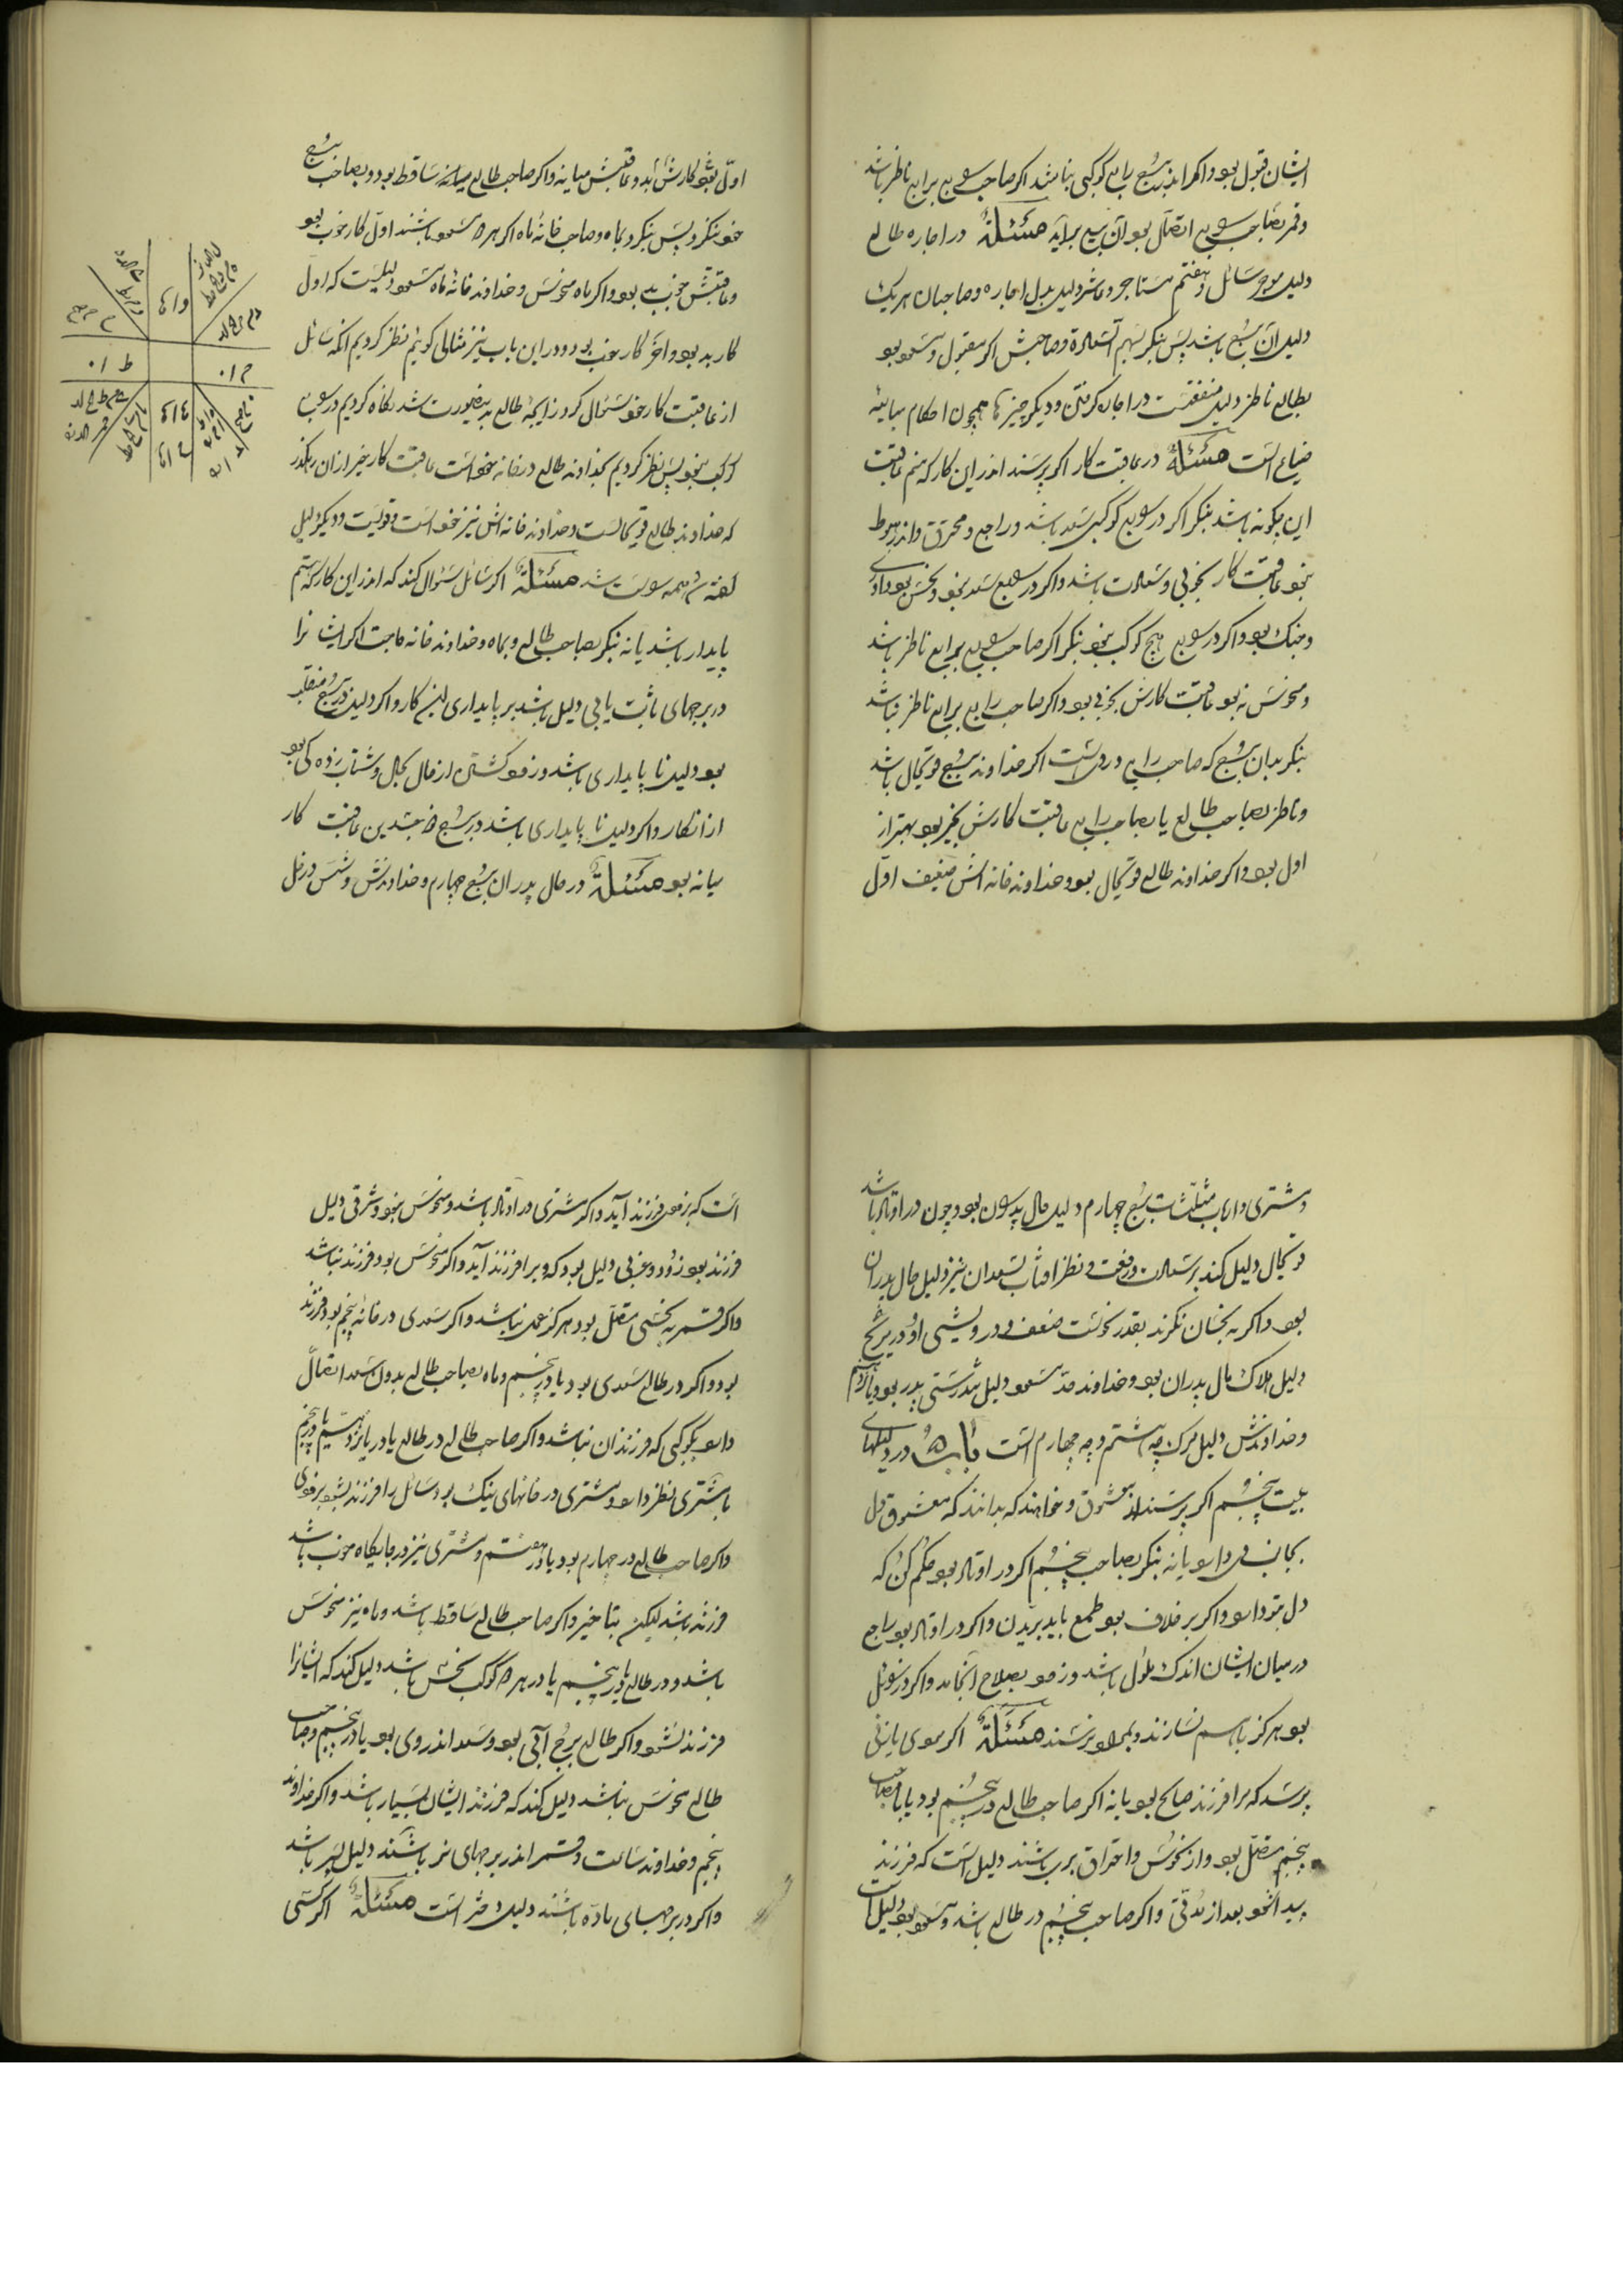 ایشان قبول بود واکر اندر برج رابع کوکبی نباشد اکر صاحب رابع برابع ناظر باشد
وقمر بصاحب رابع اتصال بود آن بیع برآید مسئلة در اجاره طالع
دلیل موجر سائل وهفتم مستاجر وعاشر دلیل بدل اجاره وصاحبان هریک
دلیل آن برج باشد پس بنکر بسهم السعادة وصاحبش اکر مقبول ومسعود بود
بطالع ناظر دلیل منفعتست در اجاره کرفتن ودیکر چیزها همچون احکام مبایعه
ضیاع است مسئلة در عاقبت کار اکر پرسند اندر این کار که منم عاقبت
این چکونه باشد بنکر اکر در رابع کوکبی سعد باشد وراجع ومحترق واندر هبوط
نبود عاقبت کار بخوبی وسعادت باشد واکر در رابع سعد نبود ونحس بود داوری
وجنک بود واکر در رابع هیچ کوکب نبود بنکر اکر صاحب رابع برابع ناظر باشد
ومنحوس نه بود عاقبت کارش بخوبی بود واکر صاحب رابع برابع ناظر نباشد
بنکر بدان برج که صاحب رابع دروی است اکر خداوند برج قویحال باشد
وناظر بصاحب طالع یا بصاحب رابع عاقبت کارش بخیر بود بهتر از
اول بود واکر خداوند طالع قویحال بود وخداوند خانه اش ضعیف اول
اول نیکو کارش آید وعاقبتش میانه واکر صاحب طالع میانه ساقط بود وبصاحب برج
خود ننکرد پس بنکر بماه وصاحب خانه ماه اکر هر دو مسعود باشند اول کار خوب بود
وعاقبتش خوب بود واکر ماه منحوس وخداوند خانه ماه مسعود دلیلست که اول
کار بد بود وآخر کار خوب بود ودر این باب نیز مثالی کوئیم نظر کردیم آنکه سائل
از عاقبت کار خود سئوال کرد زایجه طالع بدینصورت شد نکاه کردیم در رابع
کوکب نبود پس نظر کردیم بخداوند طالع در خانه خود است عاقبت کار بخیر از ان رهکذر
که خداوند طالع قویحالست وخداوند خانه اش نیز خود است وقویست ودیکر دلیل
کفته شد همه درست شد مسئلة اکر سائل سئوال کند که اندر این کار که هستم
پایدار باشد یا نه بنکر بصاحب طالع وبماه وخداوند خانه حاجت اکر ایشانرا
در برجهای ثابت یابی دلیل باشد بر پایداری این کار واکر دلیل در برج منقلب
بود دلیل نا پایداری باشد وزود کشتن از حال بحال وشتاب زده کی بود
از انکار واکر دلیل نا پایداری باشد در برج ذو جسدین عاقبت کار
میانه بود مسئلة در حال پدران برج چهارم وخداوندش وشمس وزحل
ومشتری وارباب مثلثات برج چهارم دلیل حال پدران بود وچون در اوتاد باشد
قویحال دلیل کند بر سعادت ورفعت ونظر افتاب بسعدان نیز دلیل حال پدران
بود واکر به نحسان نکرند بقدر نحوست ضعف ودرویشی او ودر برج
دلیل هلاک مال پدران بود وخداوند حد مسعود دلیل تندرستی پدر بود ویازدهم
وخداوندش دلیل مرک چه هشتم وچه چهارم است باب ۵ در دلیلهای
بیت پنجم اکر پرسند از معشوق وخواهند که بدانند که معشوق دل
بجانب وی دارد یا نه بنکر بصاحب پنجم اکر در اوتاد بود حکم کن که
دل بتو دارد واکر بر خلاف بود طمع باید بریدن واکر در اوتاد بود راجع
در میان ایشان اندک ملول باشد وزود بصلاح انجامد واکر در زوائل
بود هرکز باهم نسازند وبمراد نرسند مسئلة اکر مردی یا زنی
پرسد که مرا فرزند صالح بود یا نه اکر صاحب طالع در پنجم بود یا با صاحب
پنجم متصل بود واز نحوس واحتراق بری باشند دلیل است که فرزند
پیدا شود بعد از مدتی واکر صاحب پنجم در طالع باشد ومسعود بود دلیل است
است که بزودی فرزند آید واکر مشتری در اوتاد باشد ومنحوس نبود وشرقی دلیل
فرزند بود زود وغربی دلیل بود که دیر افرزند آید واکر منحوس بود فرزند نباشد
واکر قمر به نحسی متصل بود هرکز حمل نباشد واکر سعدی در خانه پنجم بود فرزند
بود واکر در طالع سعدی بود یا در پنجم وماه بصاحب طالع بدون سعد اتصال
دارد بکوکبی که فرزندان نباشد واکر صاحب طالع در طالع یا در یازدهم یا در پنجم
با مشتری نظر دارد ومشتری در خانهای نیک بود سائل را فرزند بود بزودی
واکر صاحب طالع در چهارم بود یا در هفتم ومشتری نیز در جایکاه خوب باشد
فرزند باشد لیکن بتاخیر واکر صاحب طالع ساقط باشد وماه نیز منحوس
باشد ودر طالع یا در پنجم یا در هر دو کوکب نحس باشد دلیل کند که ایشانرا
فرزند نشود واکر طالع برج آبی بود وسعد اندر وی بود یا در پنجم وصاحب
طالع منحوس نباشد دلیل کند که فرزند ایشان بسیار باشد واکر خداوند
پنجم وخداوند ساعت وقمر اندر برجهای نر باشند دلیل پسر باشد
واکر در برجهای ماده باشند دلیل دختر است مسئلة اکر کسی